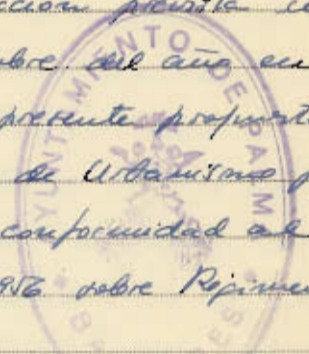 cción prevista co
bre del año en
presente propuest
de Urbanismo p
conformidad al
956 sobre Régimen
AYUNTAMIENTO DE PALM